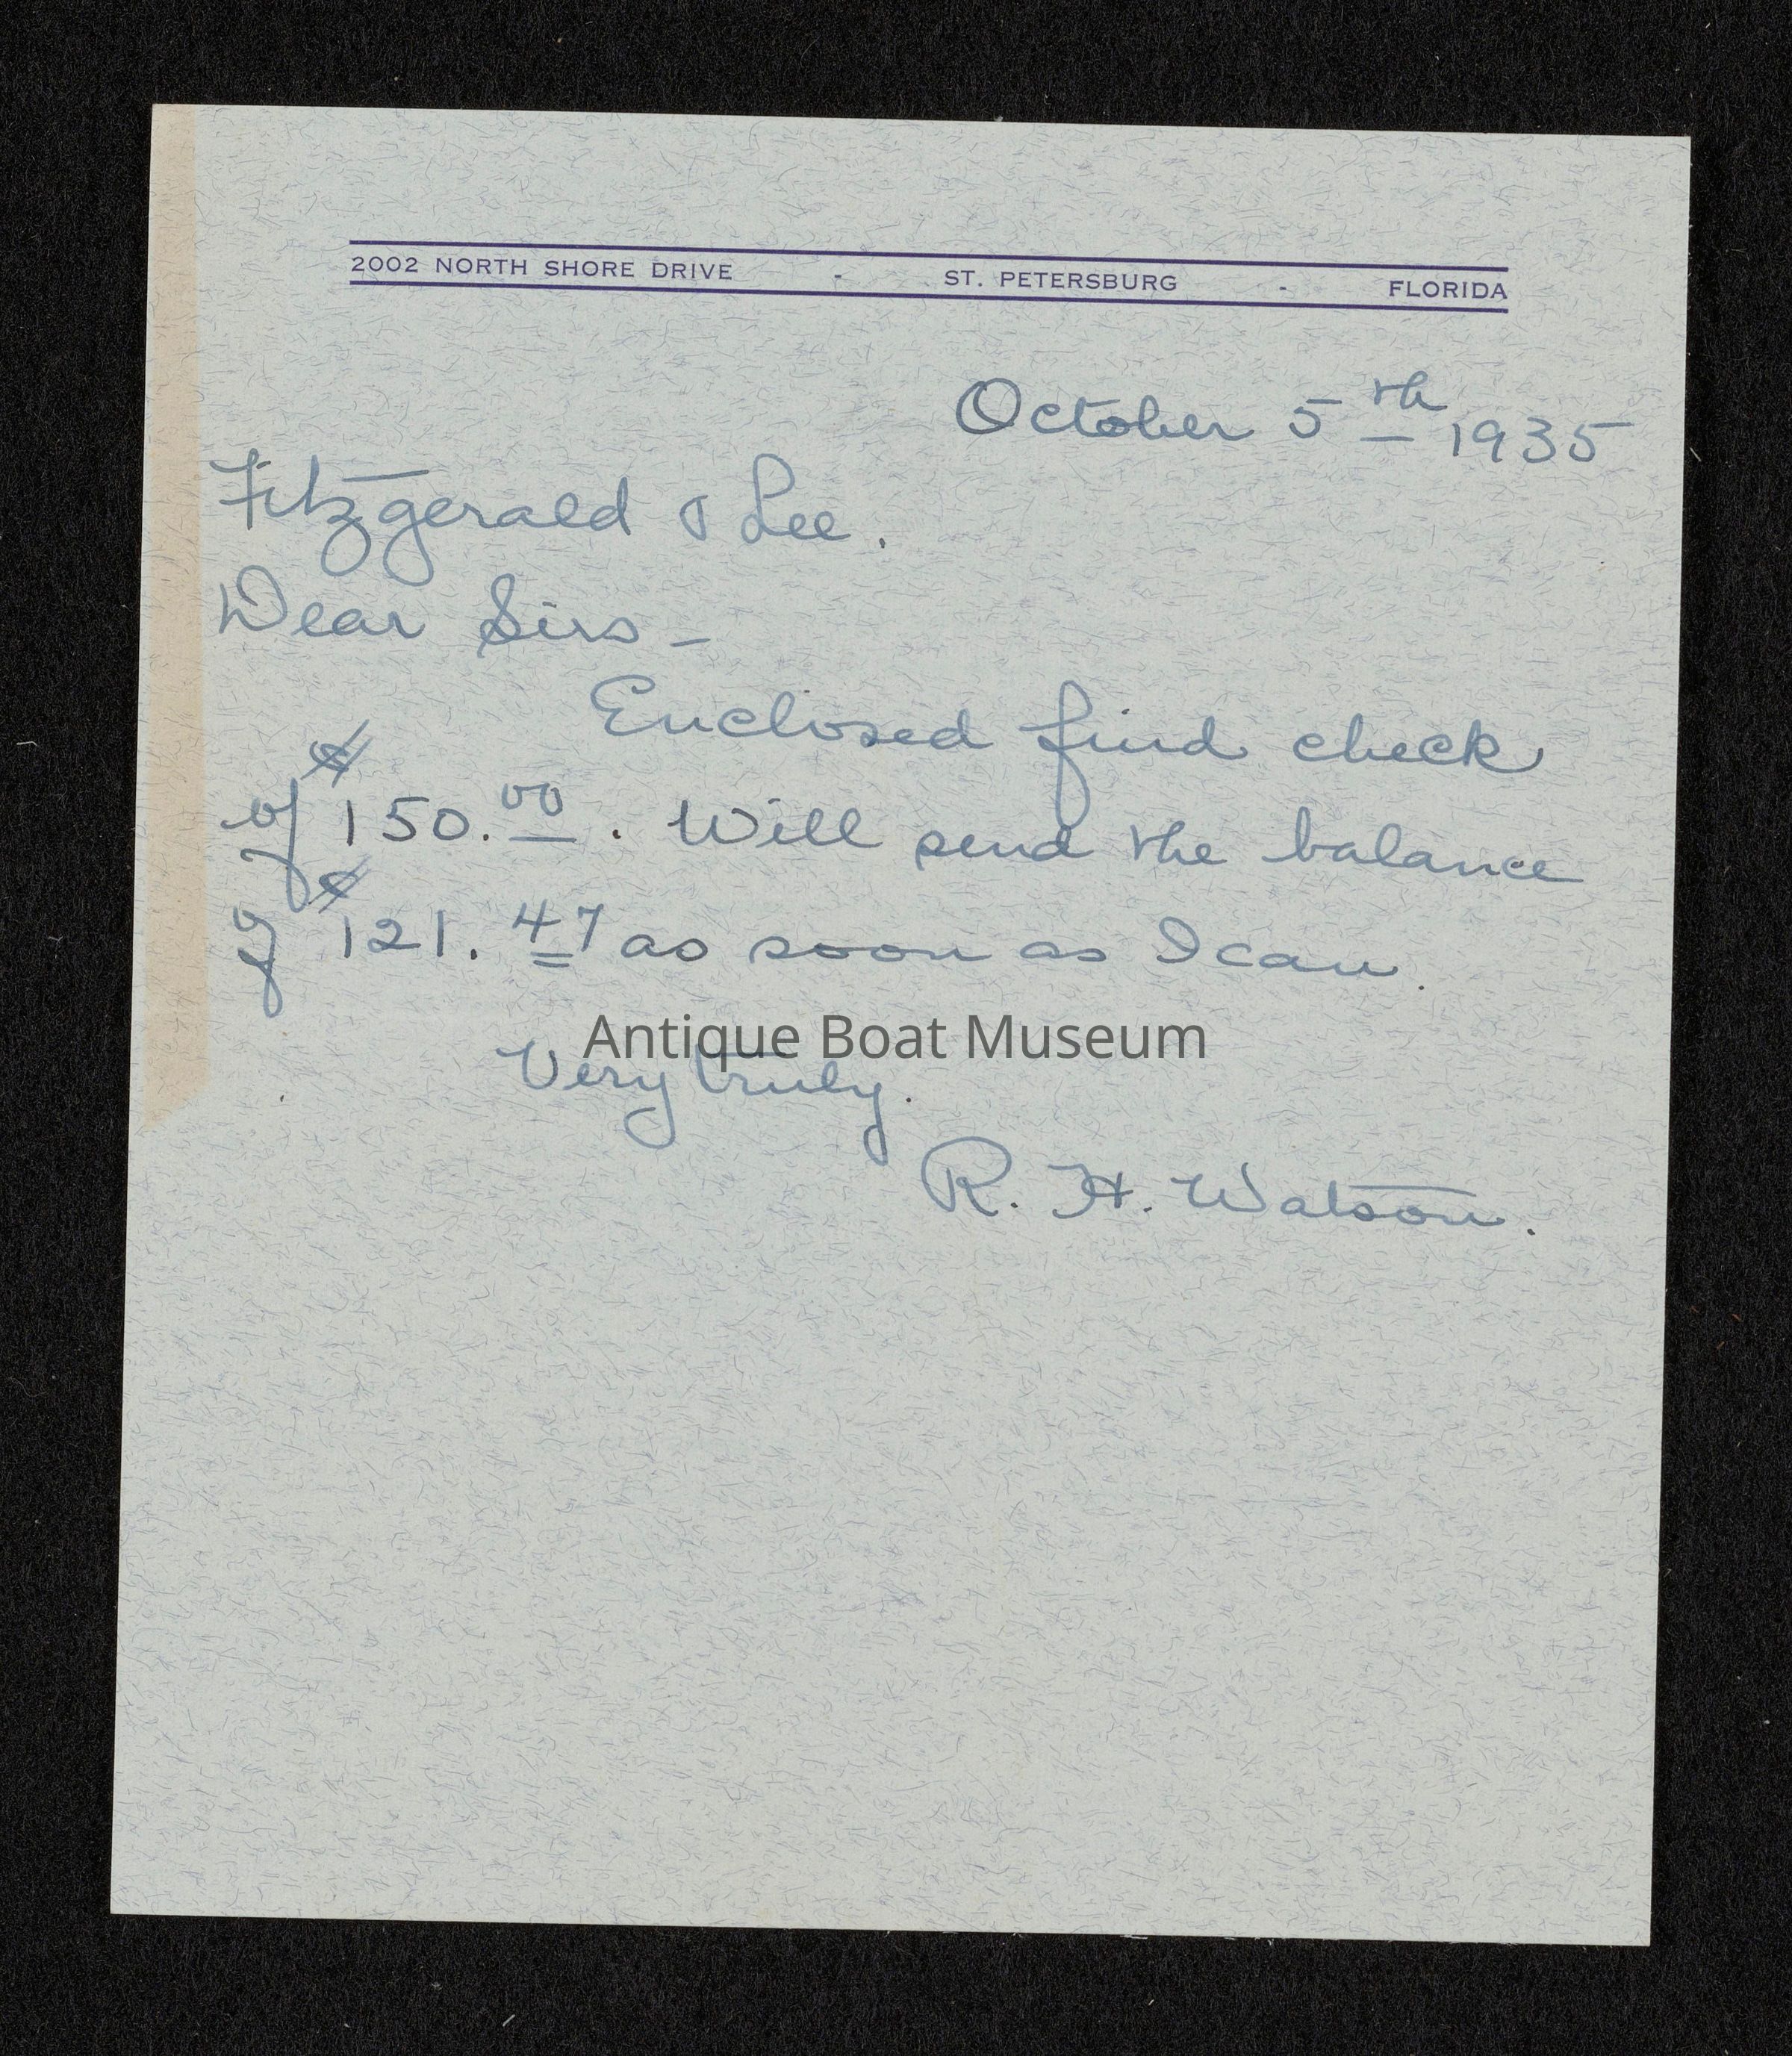 2002 NORTH SHORE DRIVE - ST. PETERSBURG - FLORIDA
October 5th 1935
Fitzgerald & Lee.
Dear Sirs -
Enclosed find check
of $150.00. Will send the balance
of $121.47 as soon as I can.
Antique Boat Museum
Very truly.
R. H. Watson.